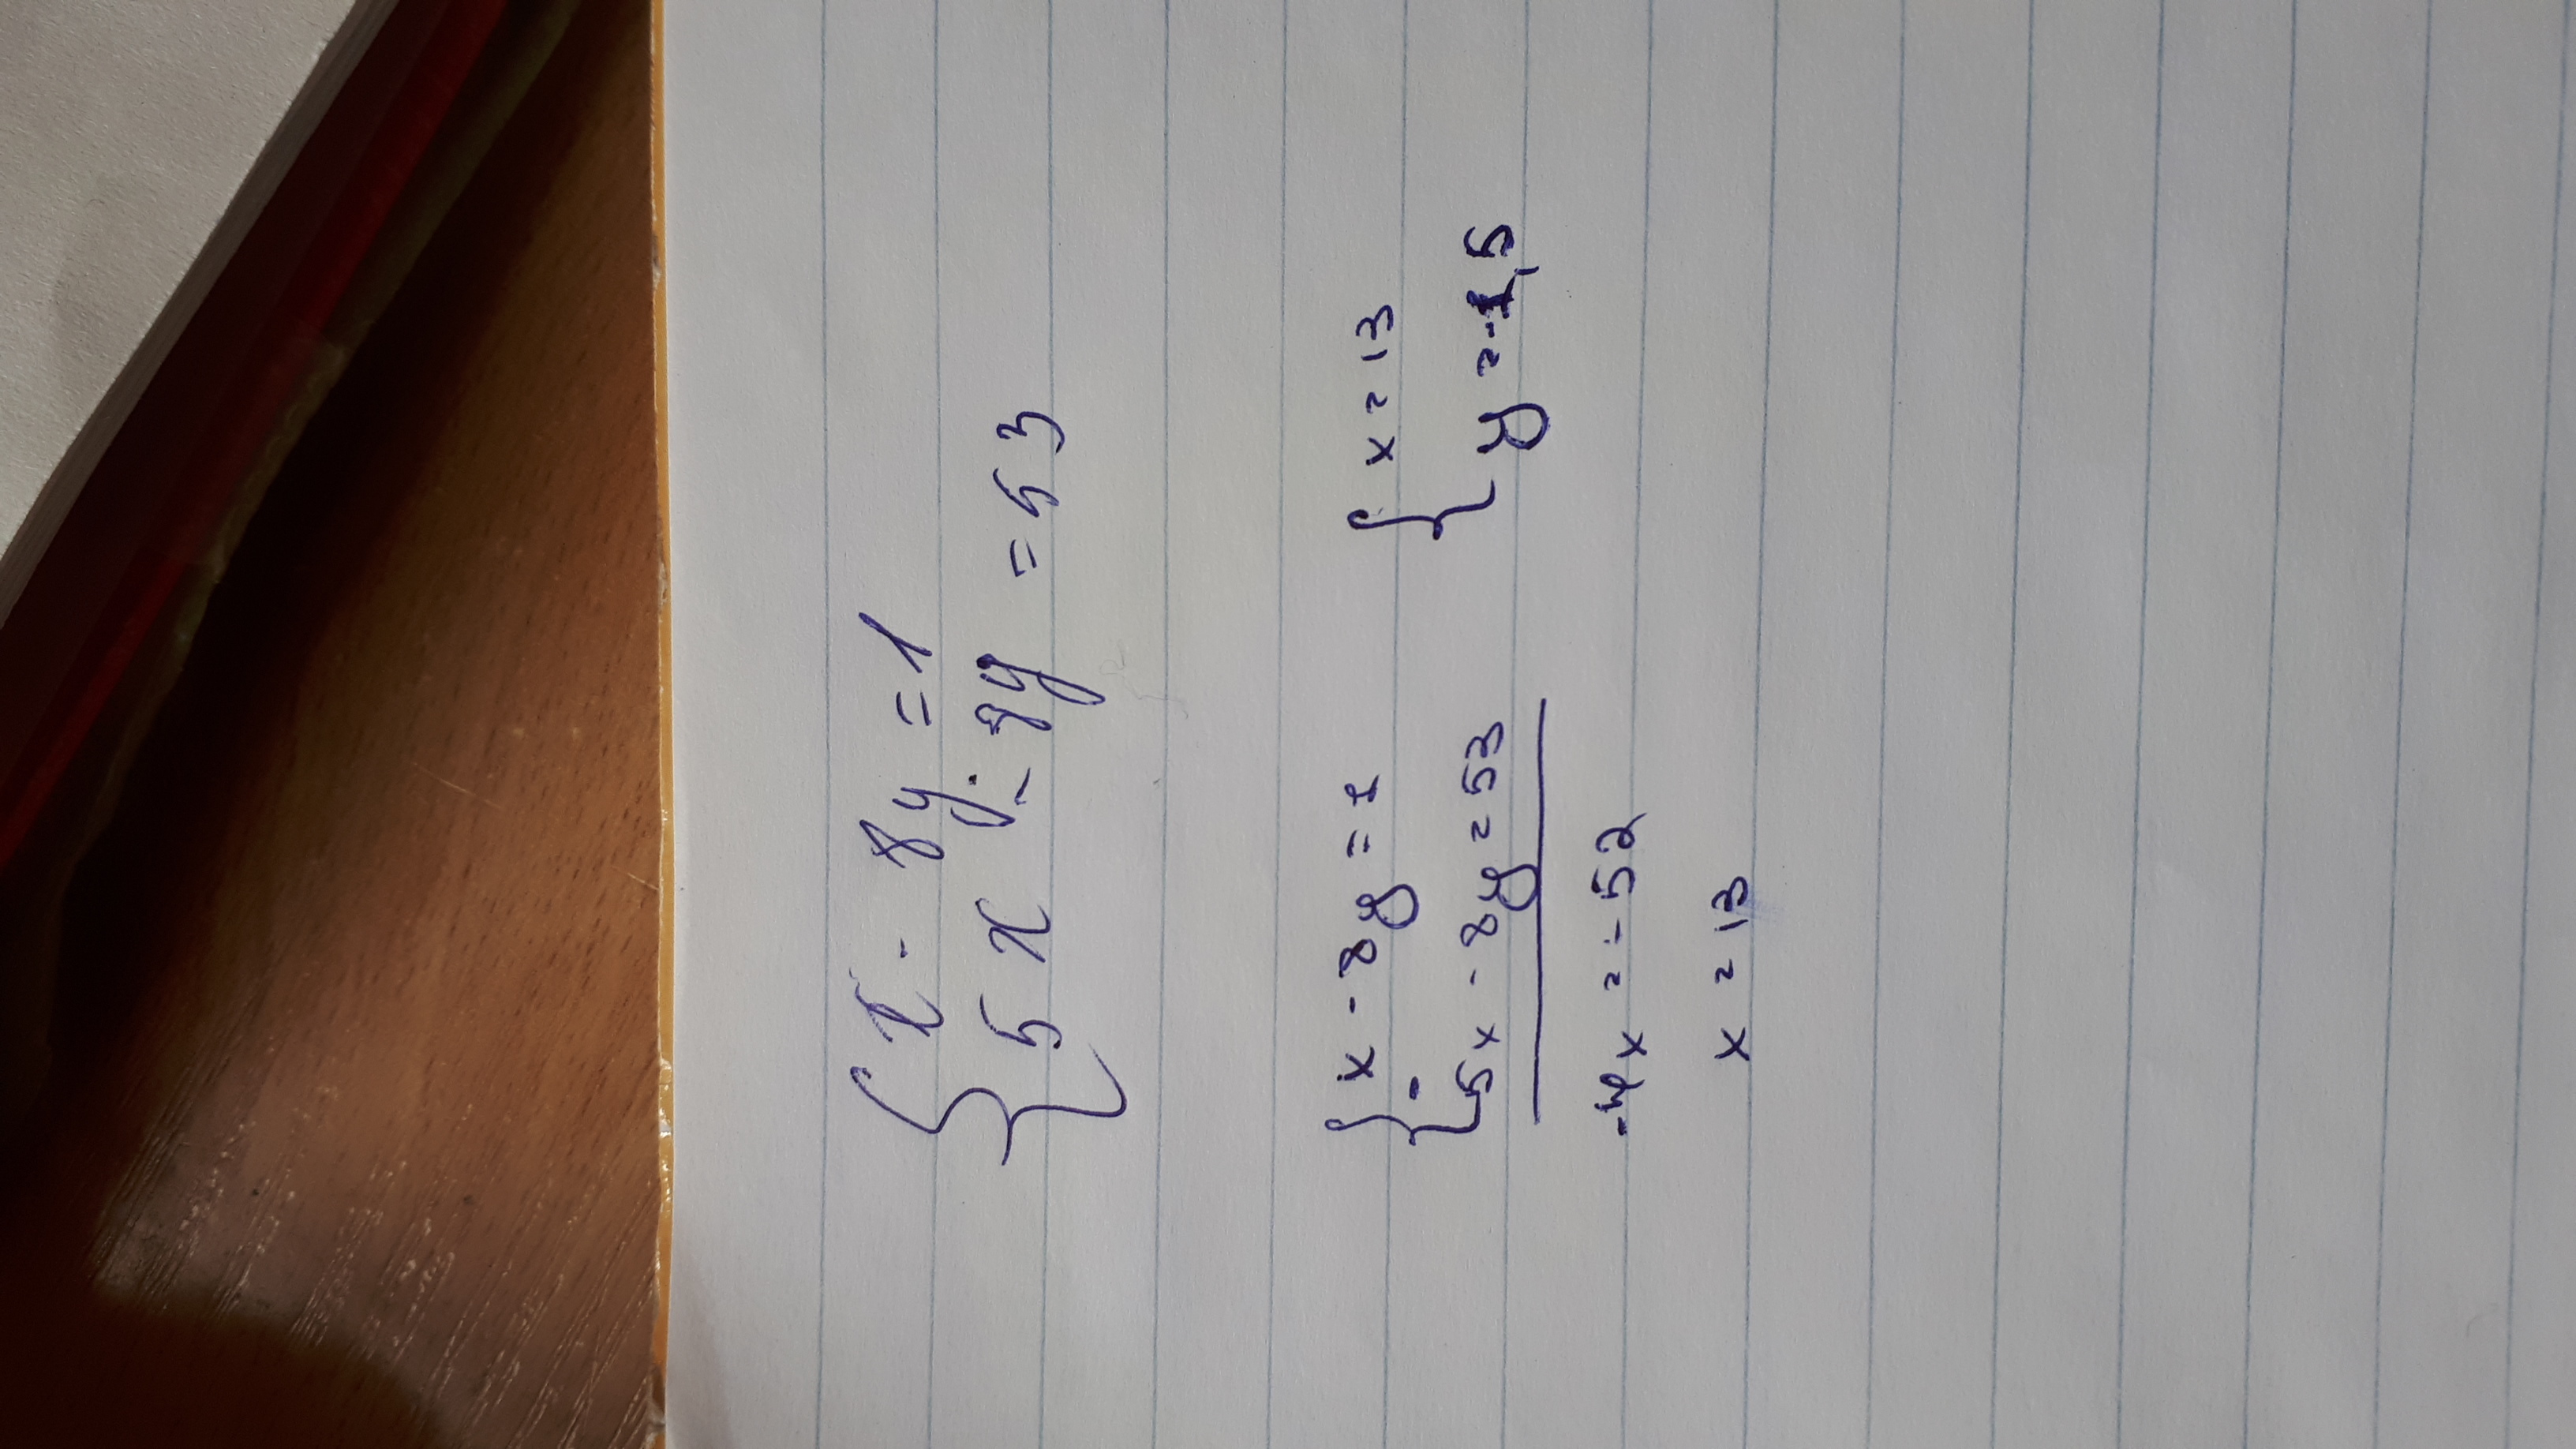 { x - 8y = 1
5x - 8y = 53
{ x - 8y = 1
- 5x - 8y = 53
-4x = -52
x = 13
{ x = 13
y = -1,5